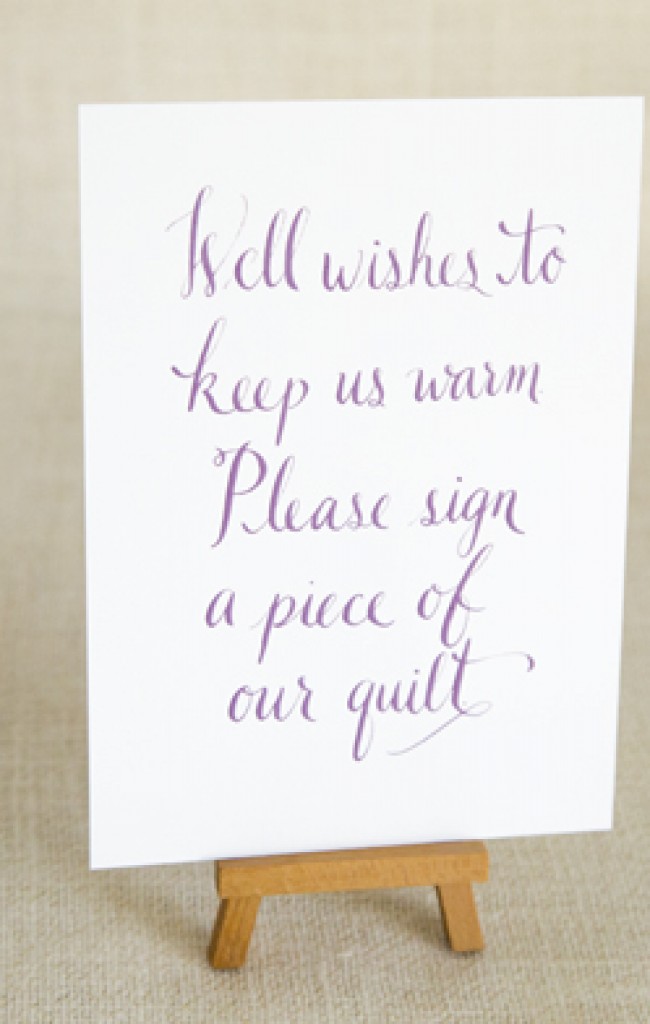 Well wishes to
keep us warm
Please sign
a piece of
our quilt